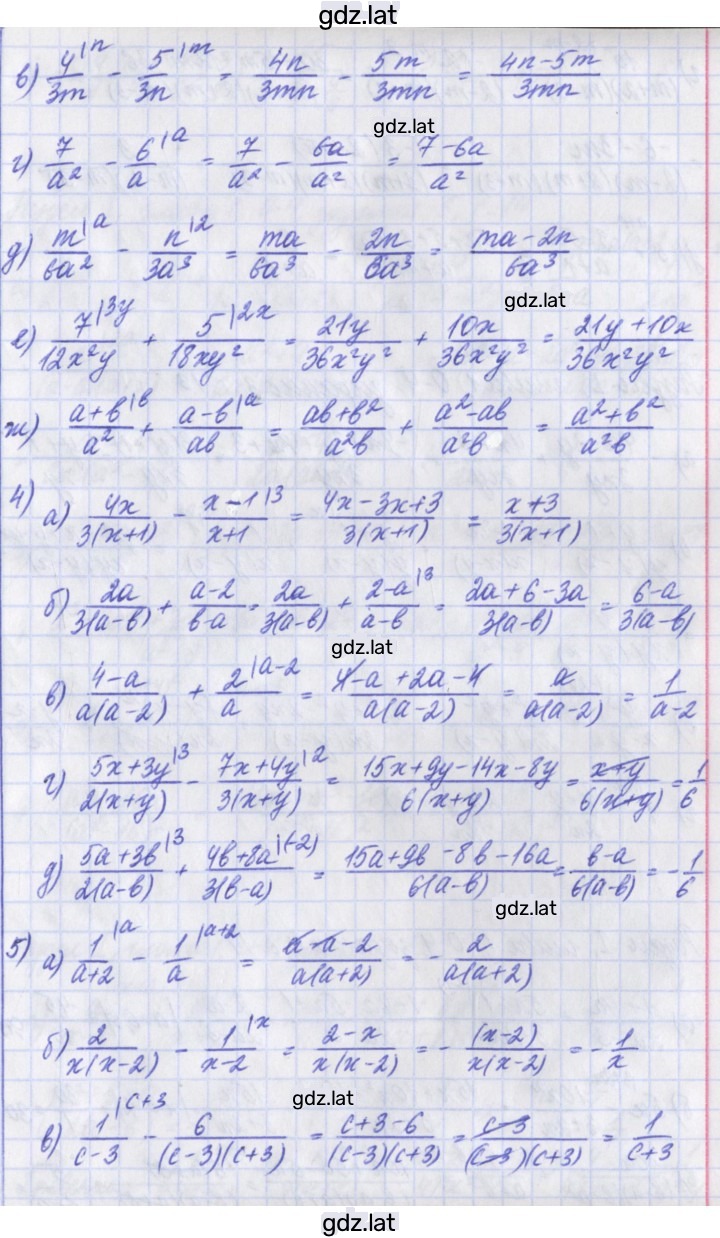 gdz.lat
в) 4|n/3m - 5|m/3n = 4n/3mn - 5m/3mn = (4n-5m)/3mn
gdz.lat
г) 7/a² - 6|a/a = 7/a² - 6a/a² = (7-6a)/a²
д) m|a/6a² - n|2/3a³ = ma/6a³ - 2n/6a³ = (ma-2n)/6a³
gdz.lat
е) 7|3y/12x²y + 5|2x/18xy² = 21y/36x²y² + 10x/36x²y² = (21y+10x)/36x²y²
ж) (a+b)|b/a² + (a-b)|a/ab = (ab+b²)/a²b + (a²-ab)/a²b = (a²+b²)/a²b
4) а) 4x/3(x+1) - (x-1)|3/(x+1) = (4x-3x+3)/3(x+1) = (x+3)/3(x+1)
б) 2a/3(a-b) + (a-2)/(b-a) = 2a/3(a-b) + (2-a)|3/(a-b) = (2a+6-3a)/3(a-b) = (6-a)/3(a-b)
gdz.lat
в) (4-a)/a(a-2) + 2|a-2/a = (4-a+2a-4)/a(a-2) = a/a(a-2) = 1/(a-2)
г) (5x+3y)|3/2(x+y) - (7x+4y)|2/3(x+y) = (15x+9y-14x-8y)/6(x+y) = (x+y)/6(x+y) = 1/6
д) (5a+3b)|3/2(a-b) + (4b+8a)|(-2)/3(b-a) = (15a+9b-8b-16a)/6(a-b) = (b-a)/6(a-b) = -1/6
gdz.lat
5) а) 1|a/(a+2) - 1|a+2/a = (a-a-2)/a(a+2) = -2/a(a+2)
б) 2/x(x-2) - 1|x/(x-2) = (2-x)/x(x-2) = -(x-2)/x(x-2) = -1/x
gdz.lat
в) 1|c+3/(c-3) - 6/(c-3)(c+3) = (c+3-6)/(c-3)(c+3) = (c-3)/(c-3)(c+3) = 1/(c+3)
gdz.lat